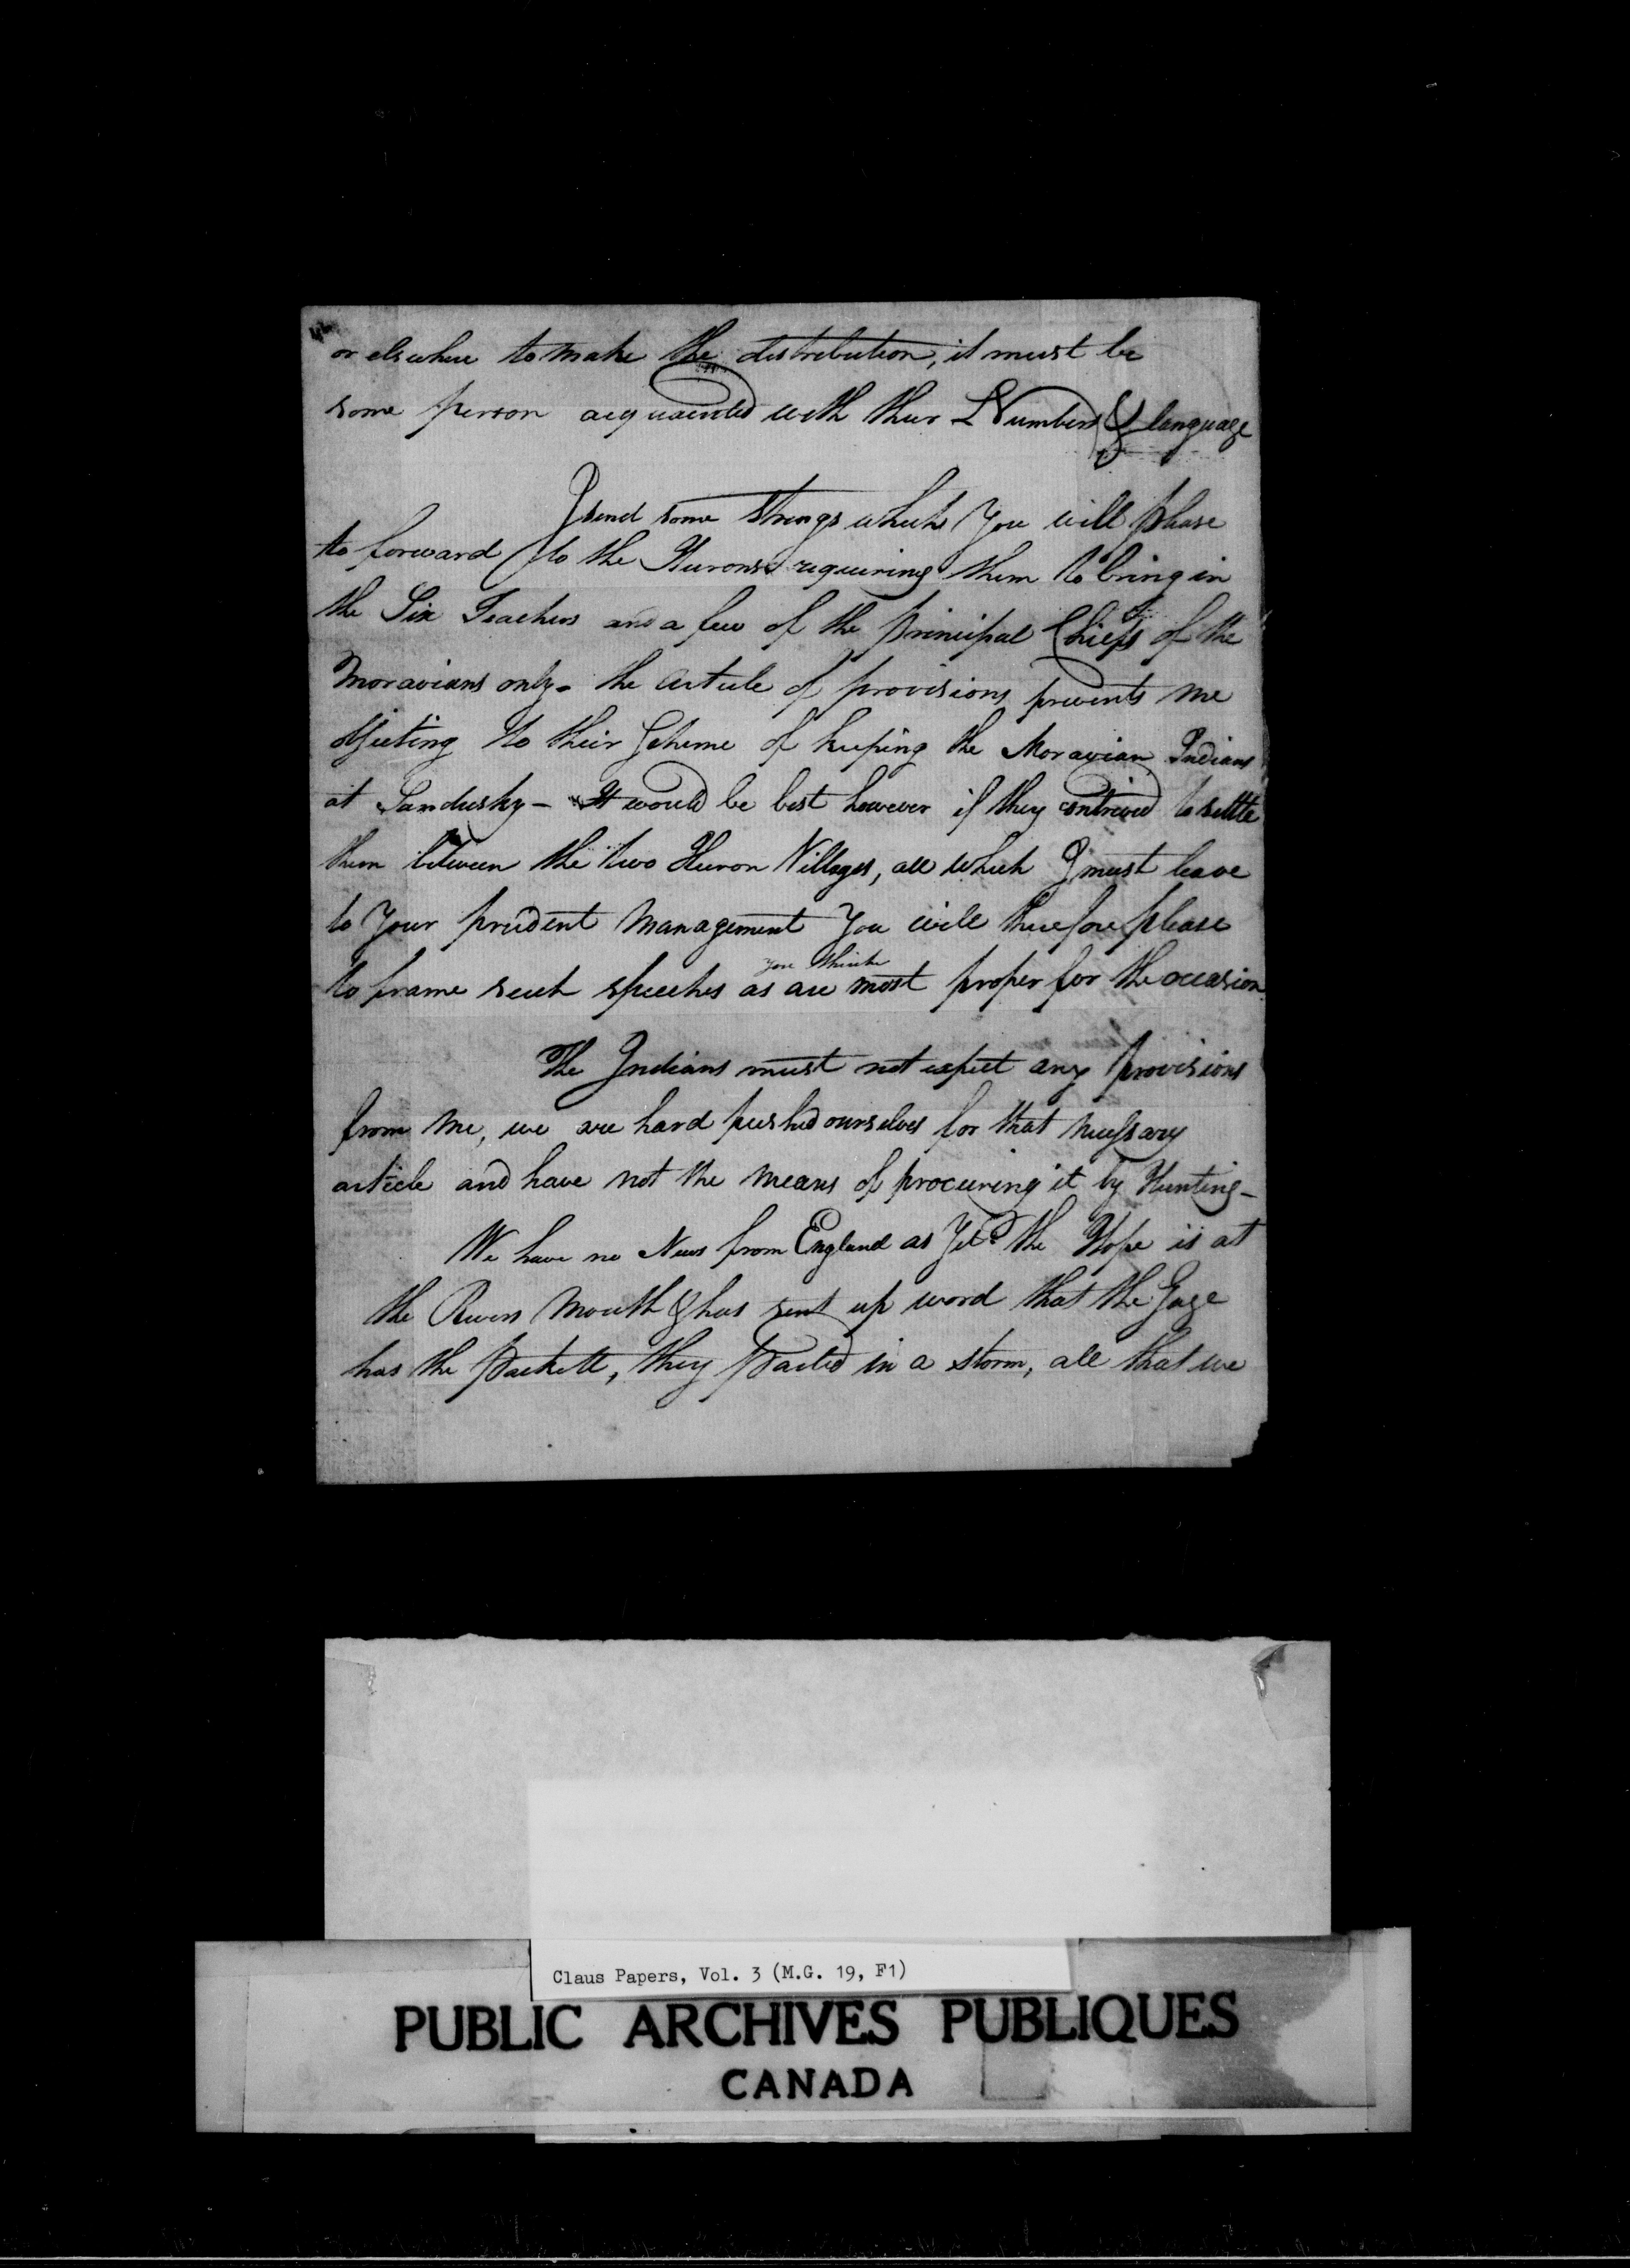 or elsewhere to make the distribution, it must be
some person acquainted with their Numbers & language
I send some strings which You will please
to forward to the Hurons requiring them to bring in
the Six Teachers and a few of the principal Chiefs of the
Moravians only - the article of provisions prevents me
objecting to their Scheme of keeping the Moravian Indians
at Sandusky - It would be best however if they contrived to settle
them between the two Huron Villages, all which I must leave
to Your prudent Management You will therefore please
you think
to frame such speeches as are most proper for the occasion
The Indians must not expect any provisions
from me, we are hard pushed ourselves for that necessary
article and have not the means of procuring it by Hunting -
We have no News from England as Yet the Hope is at
the Rivers Mouth & has sent up word that the Gage
has the packett, they parted in a storm, all that we
Claus Papers, Vol. 3 (M.G. 19, F1)
PUBLIC ARCHIVES PUBLIQUES
CANADA